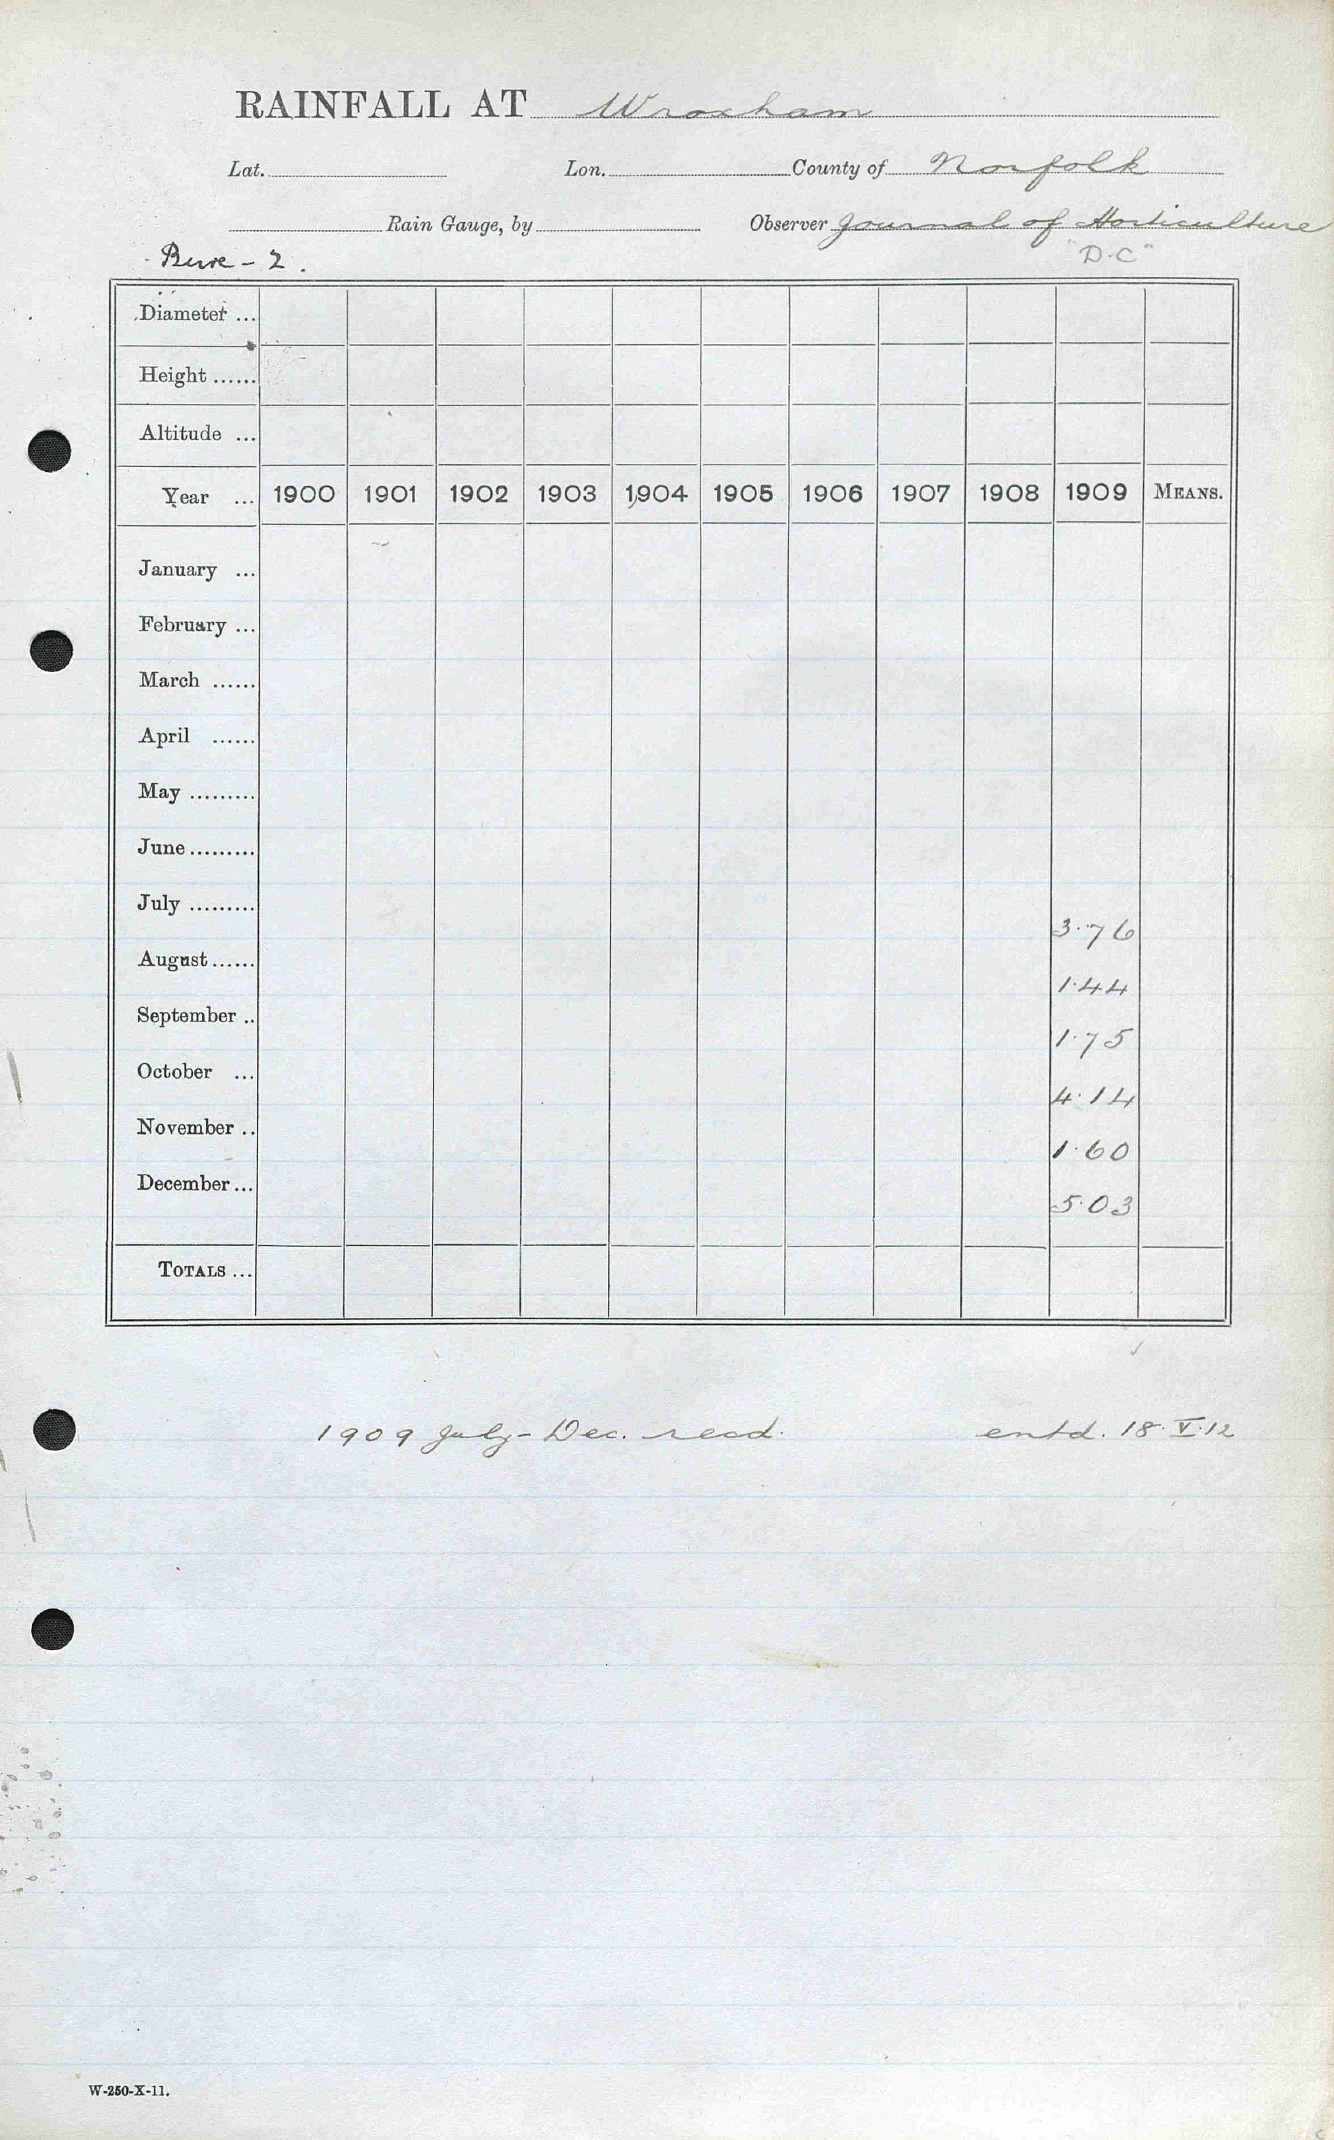 RAINFALL AT Wroxham
Lat. Lon. County of Norfolk
Rain Gauge, by Observer Journal of Horticulture
Bure - 2. "D.C"
Diameter ...
Height ......
Altitude ...
Year ... 1900 1901 1902 1903 1904 1905 1906 1907 1908 1909 MEANS.
January ...
February ...
March ......
April ......
May .........
June .........
July ......... 3.76
August ...... 1.44
September .. 1.75
October ... 4.14
November .. 1.60
December ... 5.03
TOTALS ...
1909 July - Dec. recd. entd. 18.V.12
W-250-X-11.